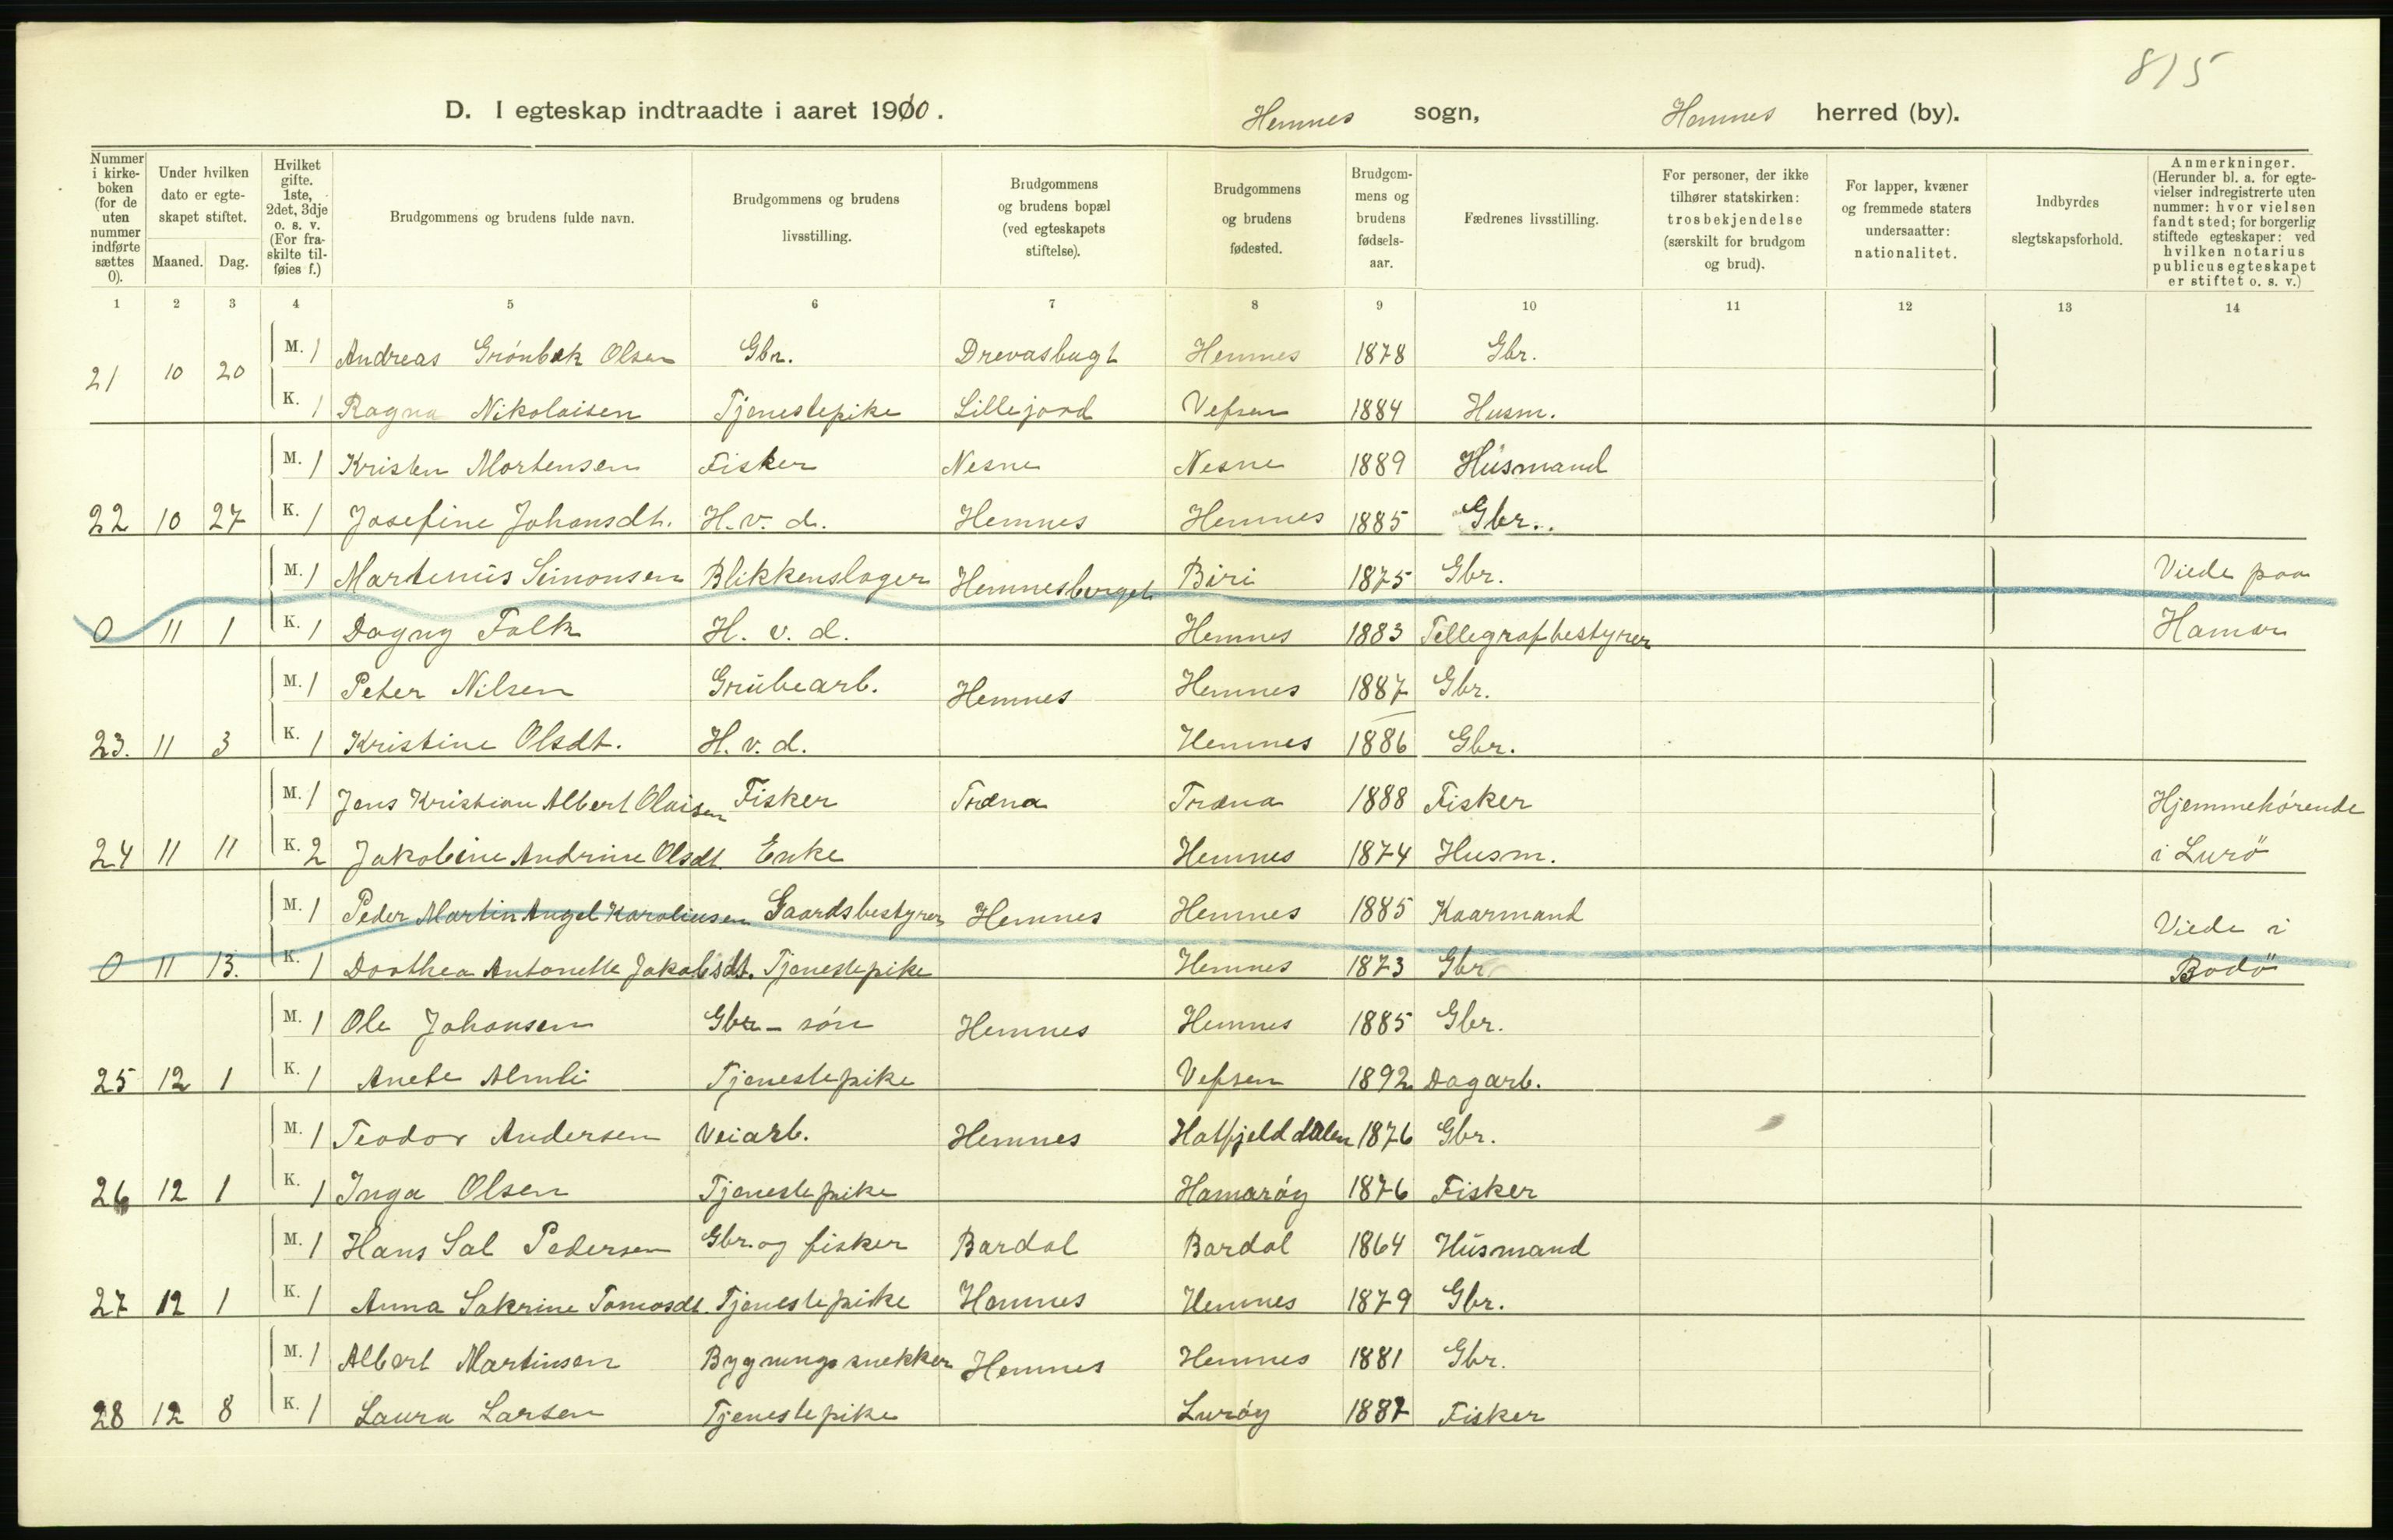 815
D. I egteskap indtraadte i aaret 1910. Hemnes sogn, Hemnes herred (by).
Nummer i kirke-boken (for de uten nummer indførte sættes 0). | Under hvilken dato er egte-skapet stiftet. Maaned. Dag. | Hvilket gifte. 1ste, 2det, 3dje o. s. v. (For fra-skilte til-føies f.) | Brudgommens og brudens fulde navn. | Brudgommens og brudens livsstilling. | Brudgommens og brudens bopæl (ved egteskapets stiftelse). | Brudgommens og brudens fødested. | Brudgom-mens og brudens fødsels-aar. | Fædrenes livsstilling. | For personer, der ikke tilhører statskirken: trosbekjendelse (særskilt for brudgom og brud). | For lapper, kvæner og fremmede staters undersaatter: nationalitet. | Indbyrdes slegtskapsforhold. | Anmerkninger. (Herunder bl. a. for egte-vielser indregistrerte uten nummer: hvor vielsen fandt sted; for borgerlig stiftede egteskaper: ved hvilken notarius publicus egteskapet er stiftet o. s. v.)
1 2 3 4 5 6 7 8 9 10 11 12 13 14
M. 1 Andreas Grönbæk Olsen Gbr. Drevasbugt Hemnes 1878 Gbr.
21 10 20 K. 1 Ragna Nikolaisen Tjenestepike Lillejord Vefsen 1884 Husm.
M. 1 Kristen Mortensen Fisker Nesne Nesne 1889 Husmand
22 10 27 K. 1 Josefine Johansdt. H. v. d. Hemnes Hemnes 1885 Gbr.
M. 1 Martinus Simonsen Blikkenslager Hemnesberget Biri 1875 Gbr. Viede paa
0 11 1 K. 1 Dagny Falk H. v. d. Hemnes 1883 Tellegrafbestyrer Hamar
M. 1 Peter Nilsen Grubearb. Hemnes Hemnes 1887 Gbr.
23. 11 3 K. 1 Kristine Olsdt. H. v. d. Hemnes 1886 Gbr.
M. 1 Jens Kristian Albert Olaisen Fisker Træna Træna 1888 Fisker Hjemmehörende
24 11 11 K. 2 Jakobine Andrine Olsdt. Enke Hemnes 1874 Husm. i Lurö
M. 1 Peder Martin Angel Karoliusen Gaardsbestyrer Hemnes Hemnes 1885 Kaarmand Viede i
0 11 13. K. 1 Dorthea Antonette Jakobsdt. Tjenestepike Hemnes 1873 Gbr Bodö
M. 1 Ole Johansen Gbr - sön Hemnes Hemnes 1885 Gbr.
25 12 1 K. 1 Anete Almli Tjenestepike Vefsen 1892 Dagarb.
M. 1 Teodor Andersen Veiarb. Hemnes Hatfjelddalen 1876 Gbr.
26 12 1 K. 1 Inga Olsen Tjenestepike Hamaröy 1876 Fisker
M. 1 Hans Sal Pedersen Gbr. og fisker Bardal Bardal 1864 Husmand
27 12 1 K. 1 Anna Sakrine Tomasdt. Tjenestepike Hemnes Hemnes 1879 Gbr.
M. 1 Albert Martinsen Bygningssnekker Hemnes Hemnes 1881 Gbr.
28 12 8 K. 1 Laura Larsen Tjenestepike Luröy 1887 Fisker